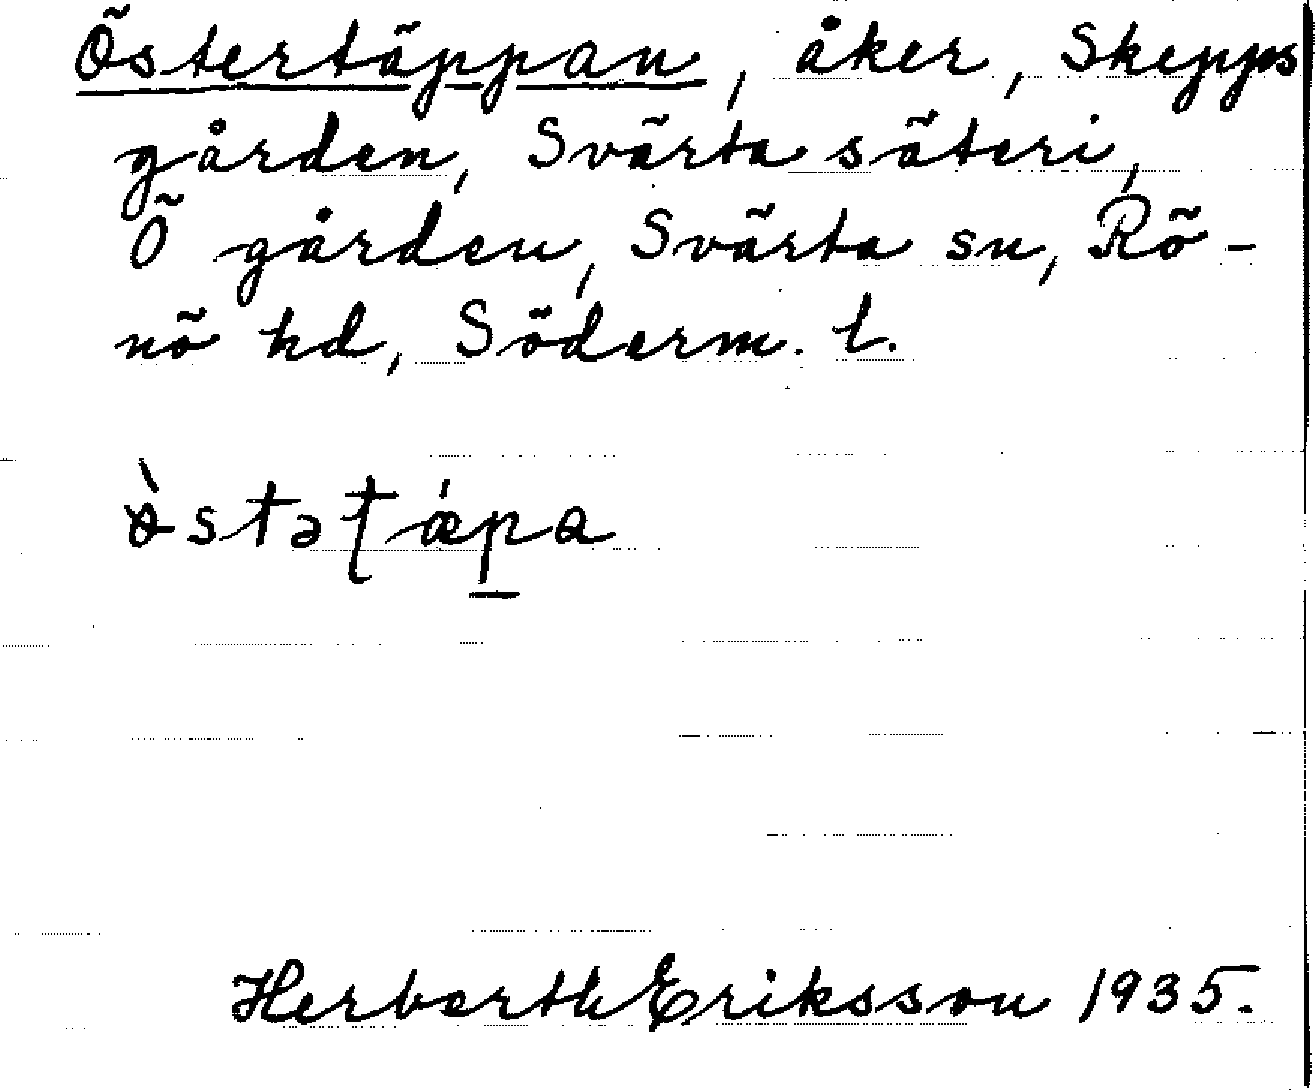 Östertäppan, åker, Skepps
gården, Svärta säteri,
Ö gården, Svärta sn, Rö-
nö hd, Söderm. l.
Herberth Eriksson 1935.